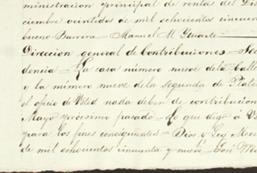 ministracion principal de rentas del Dis
ciembre veintidos de mil ochocientos cincuen
bueno Barrera = Manuel M. Ytuarte =
Direccion general de Contribuciones = Sec
dencia = La casa número nueve de la calle
y la número nueve de la segunda de Plate
el oficio de Usted nada deben de contribucion
Mayo procsimo pasado = Lo que digo á U
para los fines consiguientes = Dios y Ley Mec
de mil ochocientos cincuenta y nueve = José M